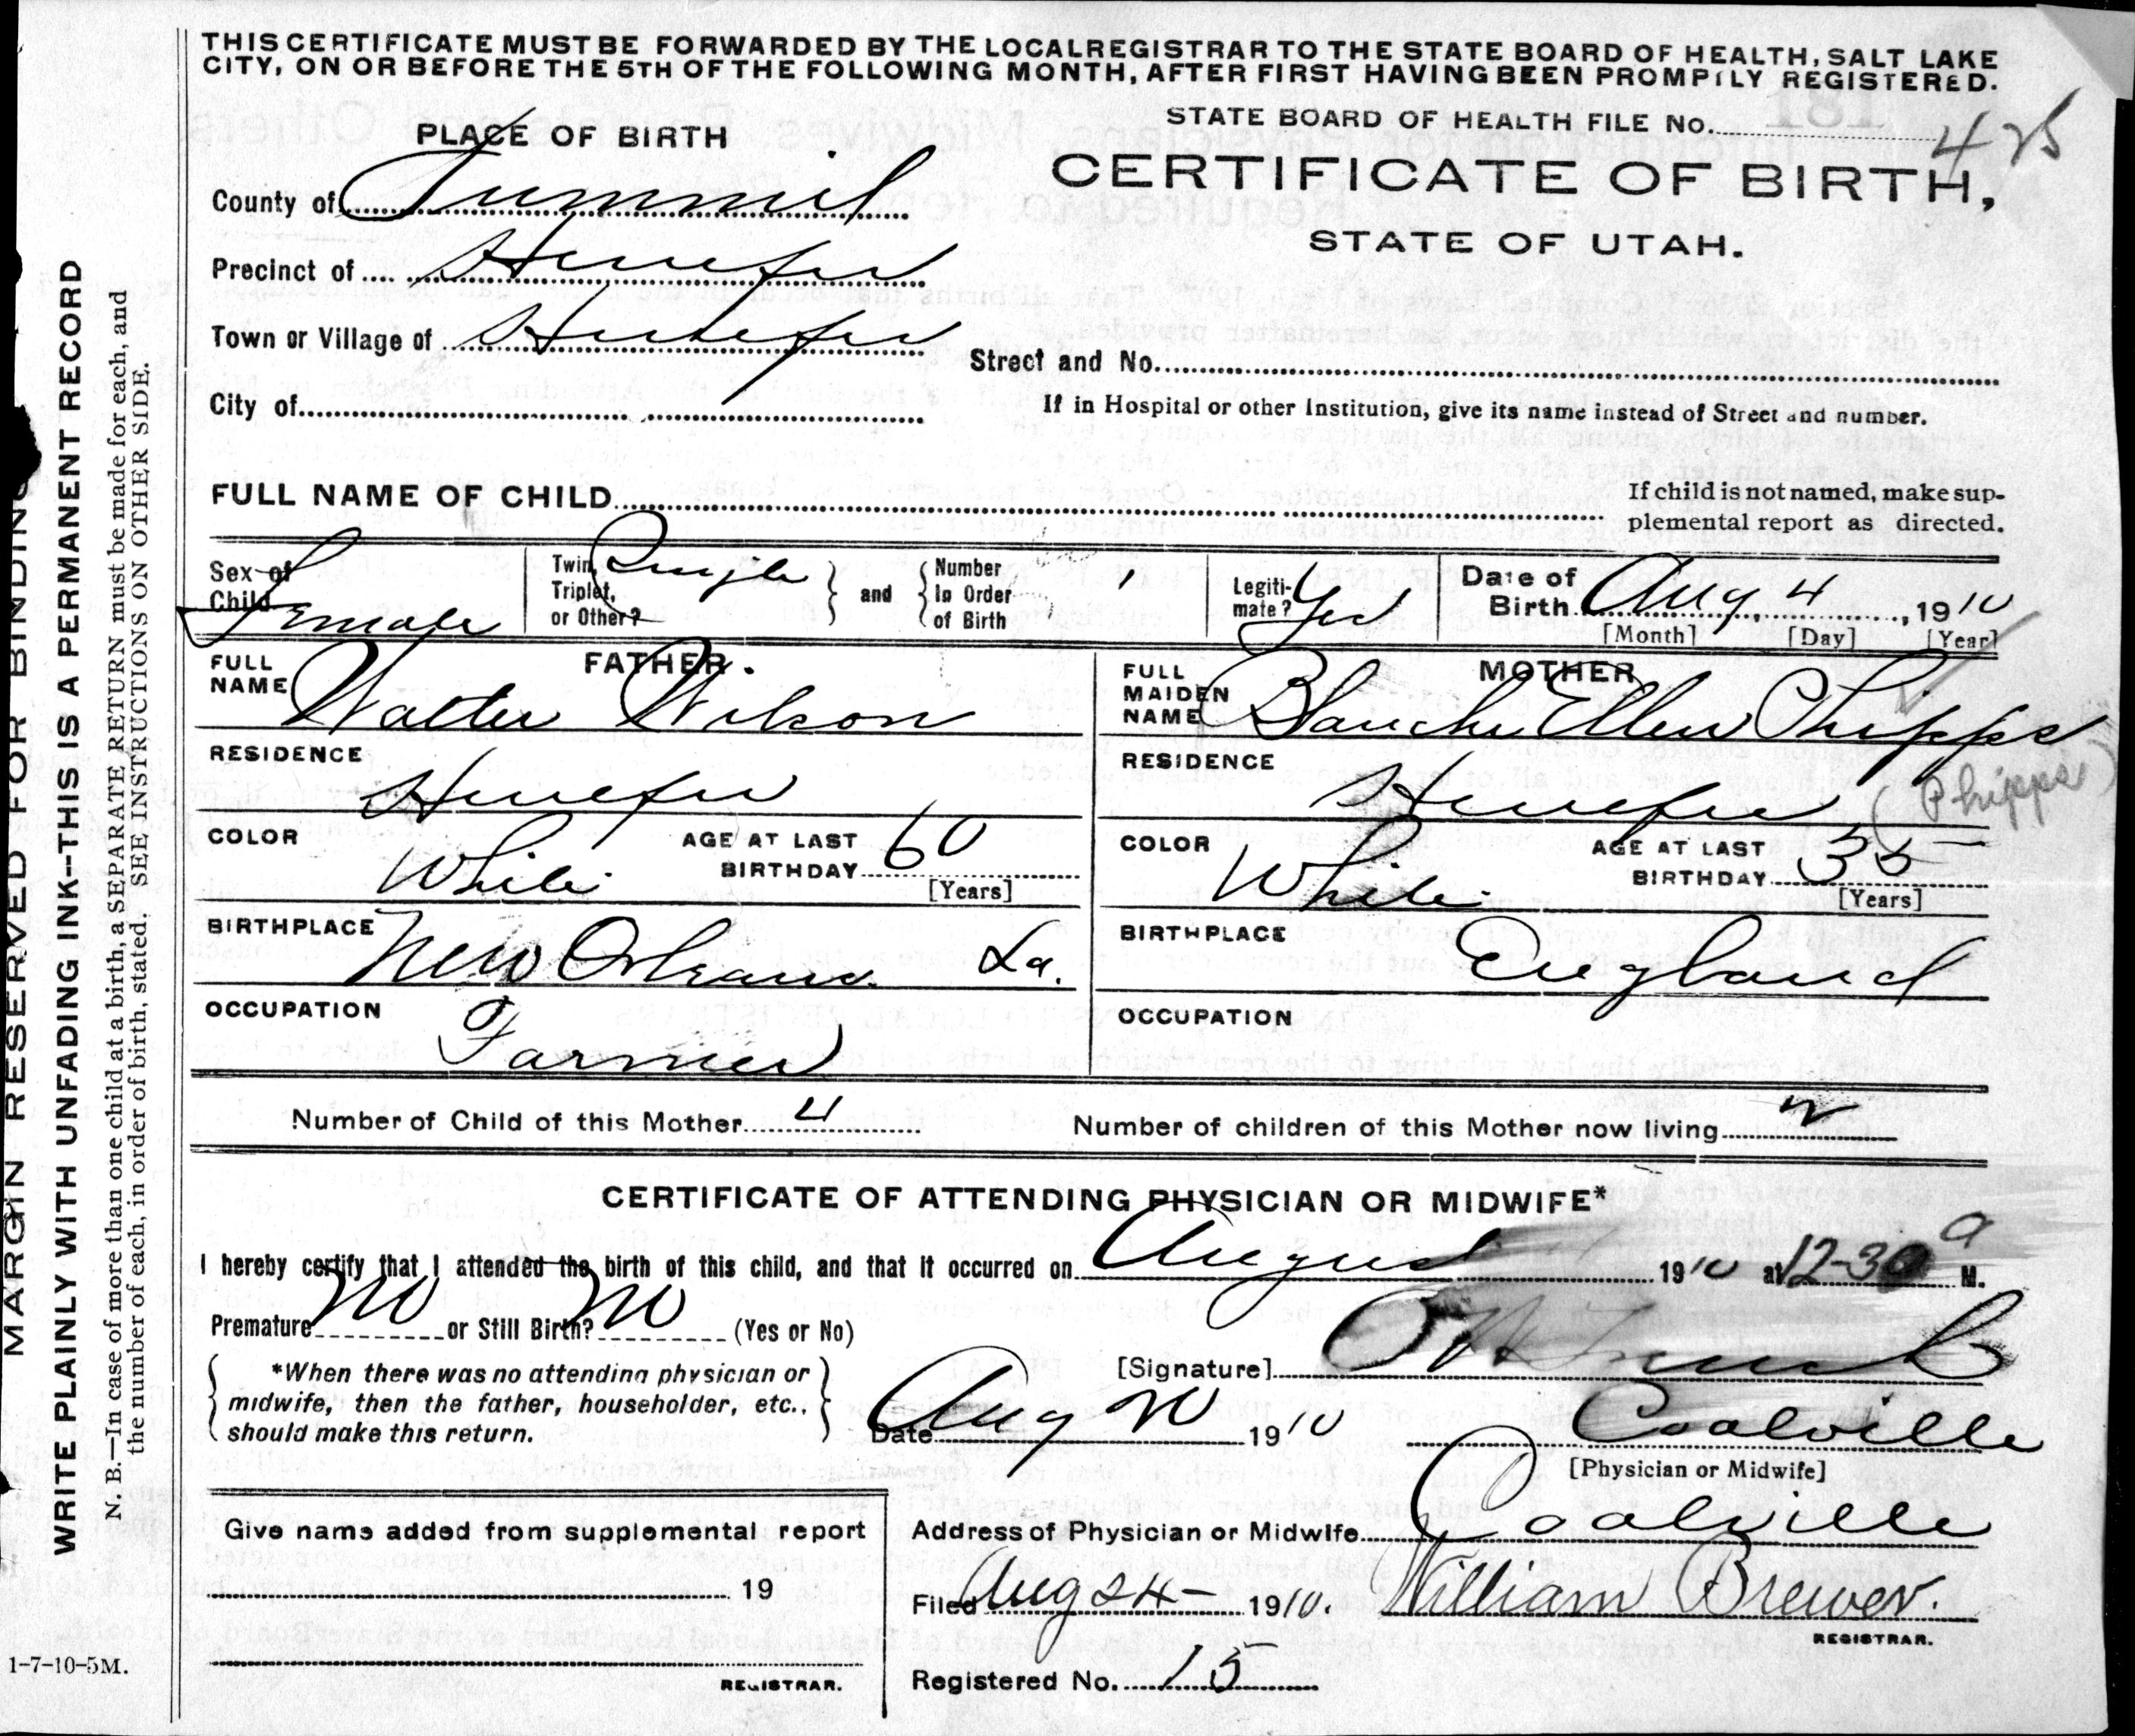 THIS CERTIFICATE MUST BE FORWARDED BY THE LOCAL REGISTRAR TO THE STATE BOARD OF HEALTH, SALT LAKE
CITY, ON OR BEFORE THE 5TH OF THE FOLLOWING MONTH, AFTER FIRST HAVING BEEN PROMPTLY REGISTERED.
STATE BOARD OF HEALTH FILE No. 425
PLACE OF BIRTH
CERTIFICATE OF BIRTH,
STATE OF UTAH.
County of Summit
Precinct of Henefer
Town or Village of Henefer
Street and No.
City of
If in Hospital or other Institution, give its name instead of Street and number.
FULL NAME OF CHILD
If child is not named, make sup-
plemental report as directed.
Sex of Child Female
Twin, Triplet, or Other? Single
and
Number In Order of Birth 1
Legiti-mate? Yes
Date of Birth Aug 4, 1910
[Month] [Day] [Year]
FATHER.
FULL NAME Walter Wilson
RESIDENCE
Henefer
COLOR White
AGE AT LAST BIRTHDAY 60
[Years]
BIRTHPLACE New Orleans La.
OCCUPATION
Farmer
MOTHER
FULL MAIDEN NAME Blanche Ellen Phipps
(Phipps)
RESIDENCE
Henefer
COLOR White
AGE AT LAST BIRTHDAY 35
[Years]
BIRTHPLACE England
OCCUPATION
Number of Child of this Mother 4
Number of children of this Mother now living 2
CERTIFICATE OF ATTENDING PHYSICIAN OR MIDWIFE*
I hereby certify that I attended the birth of this child, and that it occurred on August 1910 at 12-30 a M.
Premature No or Still Birth? No (Yes or No)
*When there was no attending physician or
midwife, then the father, householder, etc.,
should make this return.
[Signature]
Date Aug 20 1910
Coalville
[Physician or Midwife]
Give name added from supplemental report
19
REGISTRAR.
Address of Physician or Midwife Coalville
Filed Aug 24- 1910. William Brewer.
REGISTRAR.
Registered No. 15
MARGIN RESERVED FOR BINDING
WRITE PLAINLY WITH UNFADING INK--THIS IS A PERMANENT RECORD
N. B.—In case of more than one child at a birth, a SEPARATE RETURN must be made for each, and
the number of each, in order of birth, stated. SEE INSTRUCTIONS ON OTHER SIDE.
1-7-10-5M.